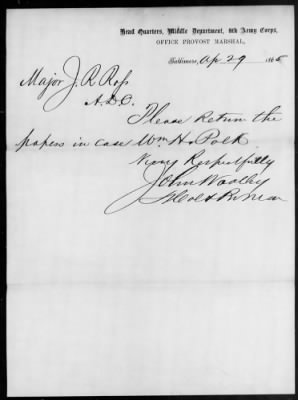 Head Quarters, Middle Department, 8th Army Corps,
OFFICE PROVOST MARSHAL,
Baltimore, Ap 29 1865
Major J. R. Ross
A.D.C.
Please Return the
papers in case Wm H. Polk
Very Respectfully
John Woolley
Lt Col & Pr. Mar